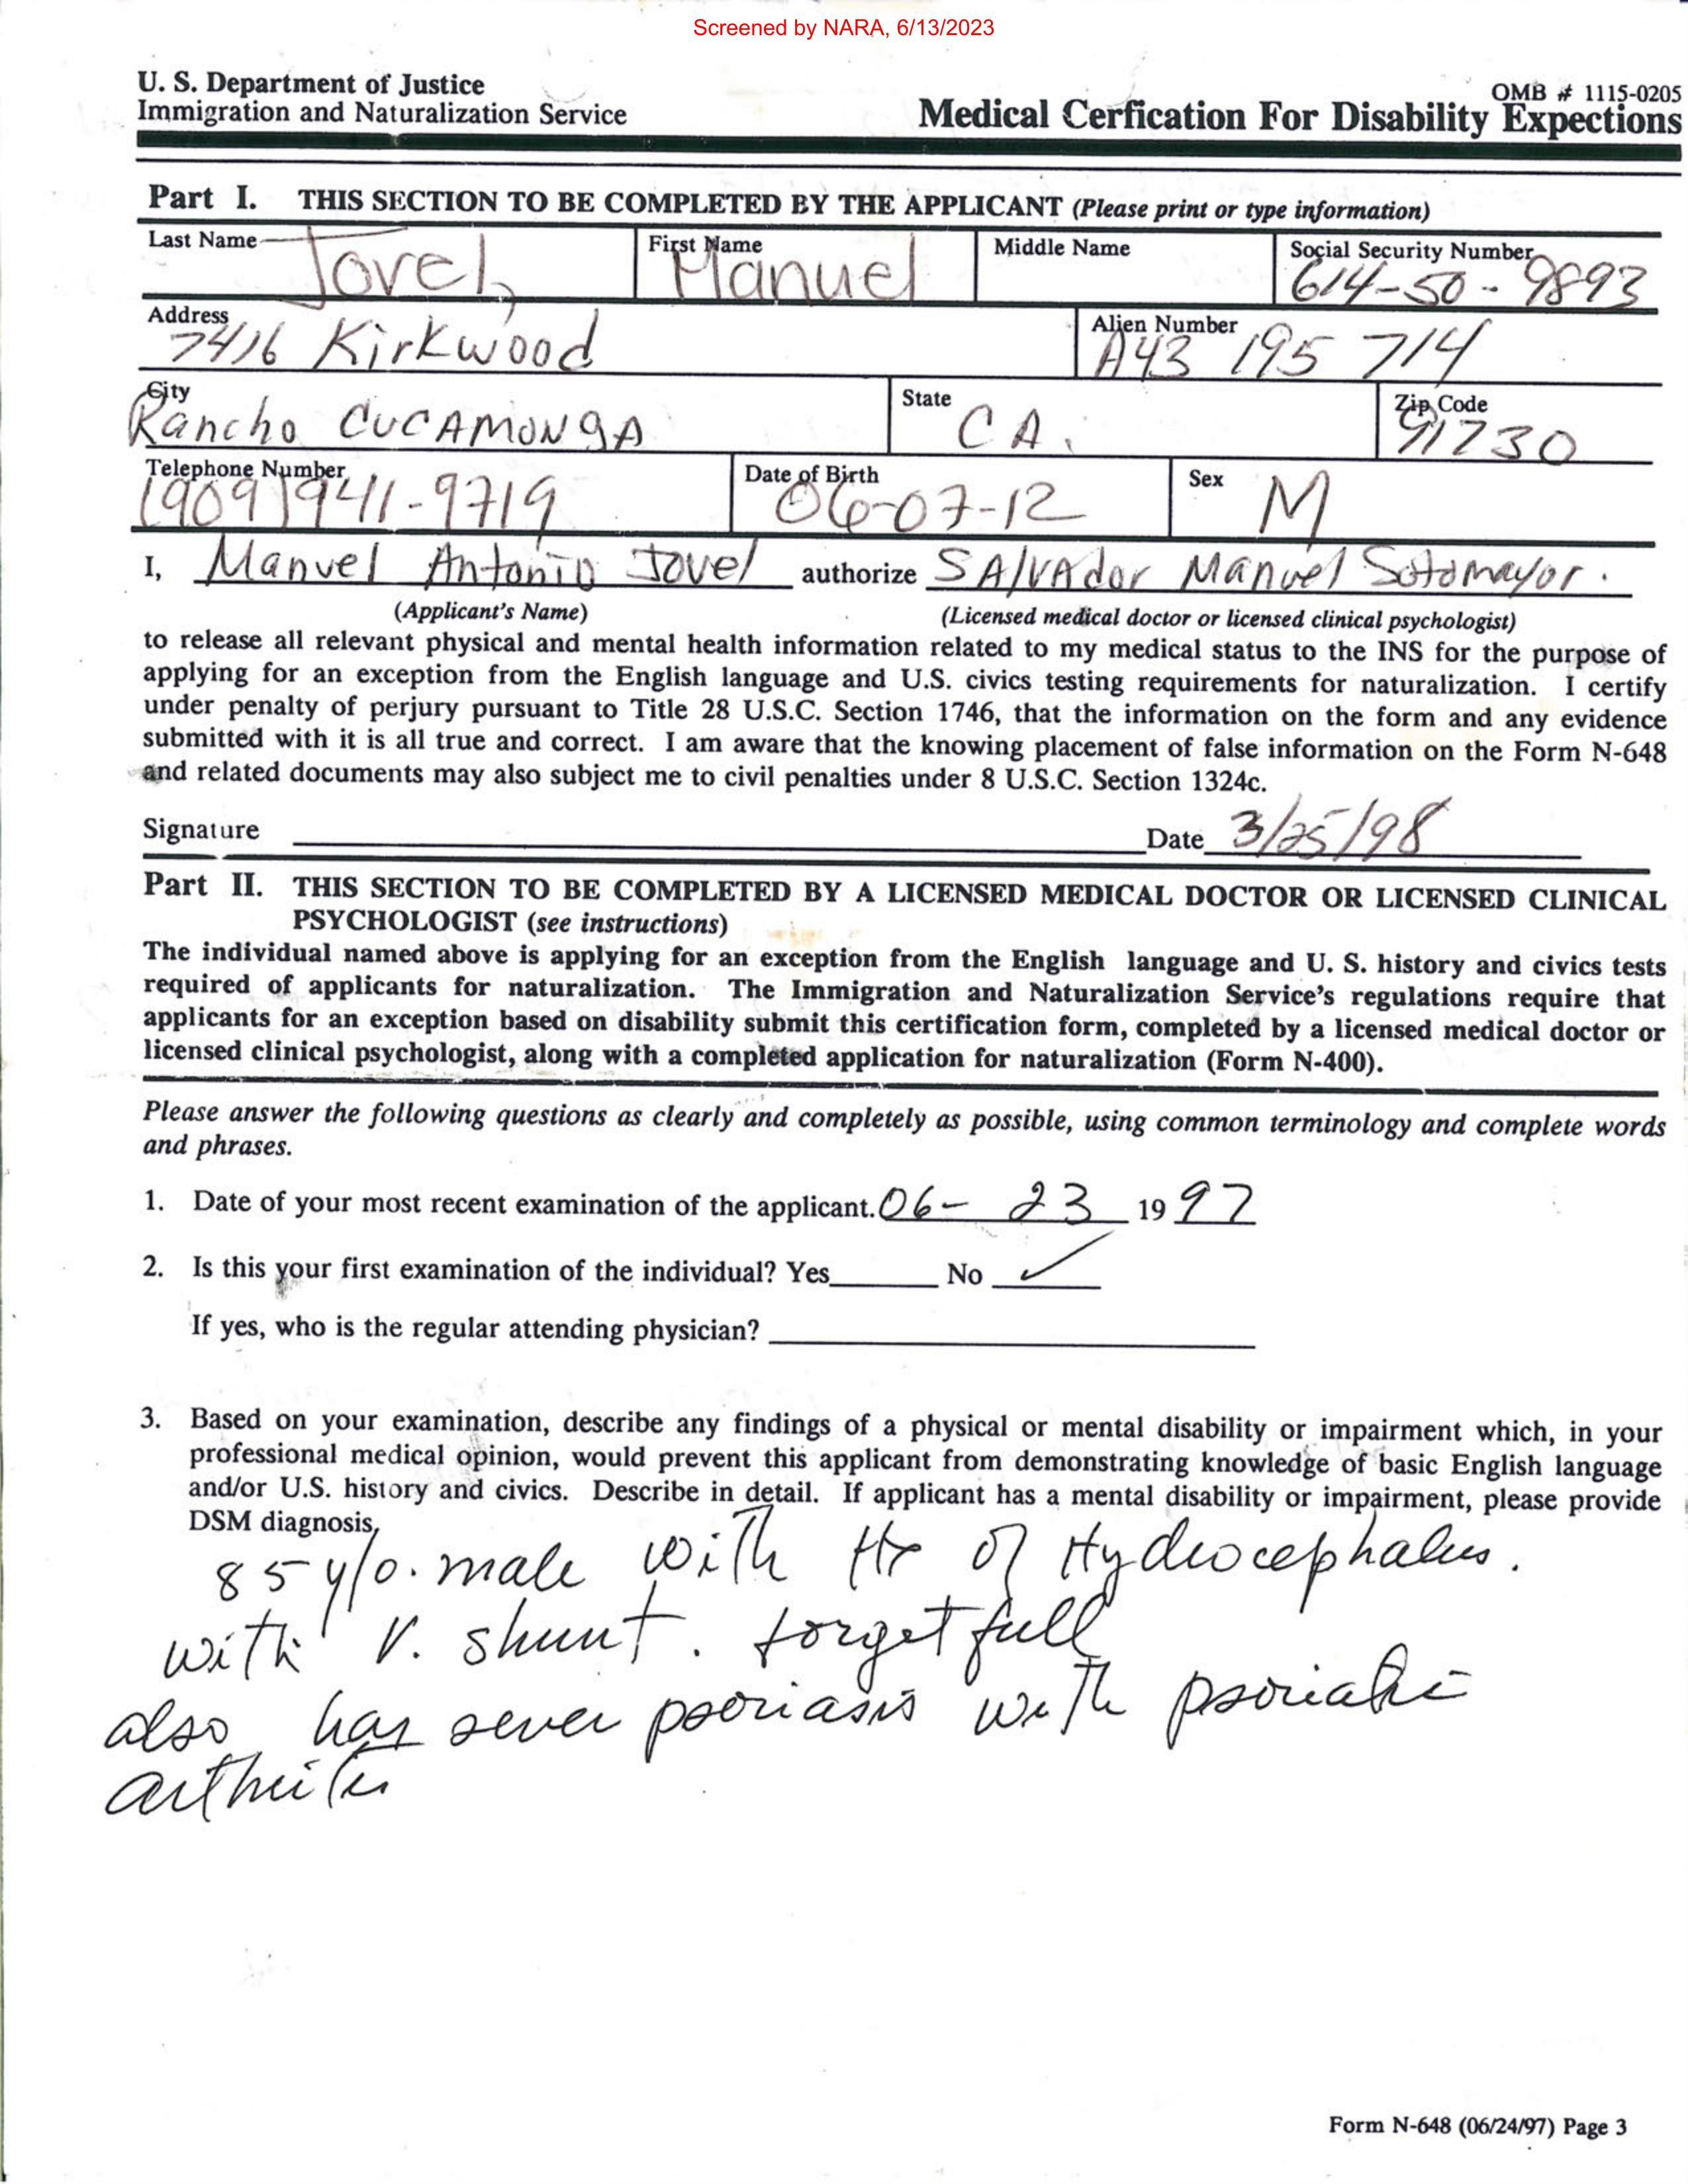 Screened by NARA, 6/13/2023
U. S. Department of Justice
Immigration and Naturalization Service
OMB # 1115-0205
Medical Cerfication For Disability Expections
Part I. THIS SECTION TO BE COMPLETED BY THE APPLICANT (Please print or type information)
Last Name Jovel, First Name Manuel Middle Name Social Security Number 614-50-9893
Address 7416 Kirkwood Alien Number A43 195 714
City Rancho CUCAMONgA State CA. Zip Code 91730
Telephone Number (909)941-9719 Date of Birth 06-07-12 Sex M
I, Manuel Antonio Jovel authorize SAlvAdor Manuel Sotomayor.
(Applicant's Name) (Licensed medical doctor or licensed clinical psychologist)
to release all relevant physical and mental health information related to my medical status to the INS for the purpose of
applying for an exception from the English language and U.S. civics testing requirements for naturalization. I certify
under penalty of perjury pursuant to Title 28 U.S.C. Section 1746, that the information on the form and any evidence
submitted with it is all true and correct. I am aware that the knowing placement of false information on the Form N-648
and related documents may also subject me to civil penalties under 8 U.S.C. Section 1324c.
Signature Date 3/25/98
Part II. THIS SECTION TO BE COMPLETED BY A LICENSED MEDICAL DOCTOR OR LICENSED CLINICAL
PSYCHOLOGIST (see instructions)
The individual named above is applying for an exception from the English language and U. S. history and civics tests
required of applicants for naturalization. The Immigration and Naturalization Service's regulations require that
applicants for an exception based on disability submit this certification form, completed by a licensed medical doctor or
licensed clinical psychologist, along with a completed application for naturalization (Form N-400).
Please answer the following questions as clearly and completely as possible, using common terminology and complete words
and phrases.
1. Date of your most recent examination of the applicant. 06- 23 1997
2. Is this your first examination of the individual? Yes No ✓
If yes, who is the regular attending physician?
3. Based on your examination, describe any findings of a physical or mental disability or impairment which, in your
professional medical opinion, would prevent this applicant from demonstrating knowledge of basic English language
and/or U.S. history and civics. Describe in detail. If applicant has a mental disability or impairment, please provide
DSM diagnosis.
85 y/o. male with Hx of Hydrocephalus.
with V. shunt. forgetfull
also has sever psoriasis with psoriatic
arthritis
Form N-648 (06/24/97) Page 3